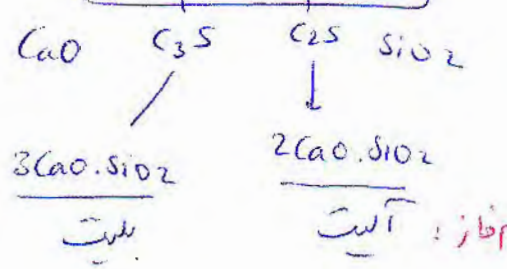 CaO C3S C2S SiO2
3CaO.SiO2 2CaO.SiO2
بلیت آلیت : فاز